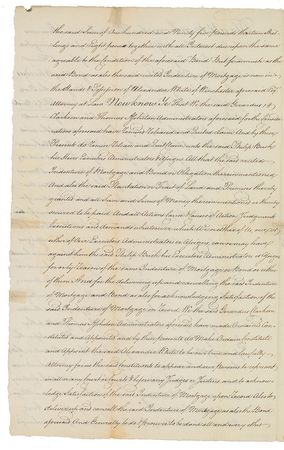 the said Sum of Two hundred and Ninety five Pounds thirteen Shil
lings and Eight pence together with all Interest due upon the same
agreable to the Condition of the aforesaid Bond But forasmuch as the
said Bond as also the said recited Indenture of Mortgage is now in
the Hands & Possession of Alexander White of Winchester aforesaid Esq
Attorney at Law Now know Ye That We the said
Clarkson and Thomas Administrators aforesaid for the Conside
ration aforesaid have Remised Released and Quitted Claim And by these
Presents do Remise Release and Quit Claim unto the said Philip Bush
his Heirs Executors Administrators & Assigns All that the said recited
Indenture of Mortgage and Bond or Obligation therein mentioned
And also the said Plantation or Tract of Land and Premises thereby
granted and all Sum and Sums of Money therein mentioned or thereby
secured to be paid And all Actions Causes of Action Judgments
Executions and demands whatsoever which We or either of Us our or
either of Our Executors Administrators or Assigns can or may have
against him the said Philip Bush his Executors Administrators or Assigns
for or by Reason of the same Indenture of Mortgage or Bond or either
of them And for the delivering up and cancelling the said Indenture
of Mortgage and Bond as also for acknowledging Satisfaction of the
said Indenture of Mortgage on Record We the said Clarkson
and Thomas Administrators aforesaid have made Ordained Con
stituted and Appointed and by these presents do Make Ordain Constitute
and Appoint the said Alexander White to be our true and lawfull
Attorney for us the said Constituents to appear and any Persons to represent
in all or any Court or Courts & before any Judges or Justices and to acknow
ledge Satisfaction of the said Indenture of Mortgage upon Record Also to
deliver up and cancell the said Indenture of Mortgage as also the Bond
aforesaid And Generally to do & procure to be done all and every other